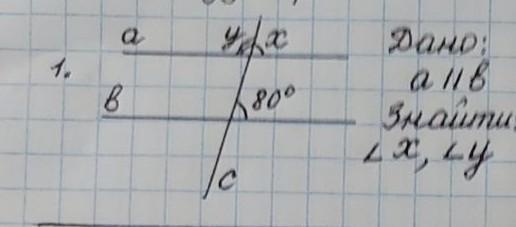 1.
a y x
b 80°
c
Дано:
a || b
Знайти:
∠x, ∠y